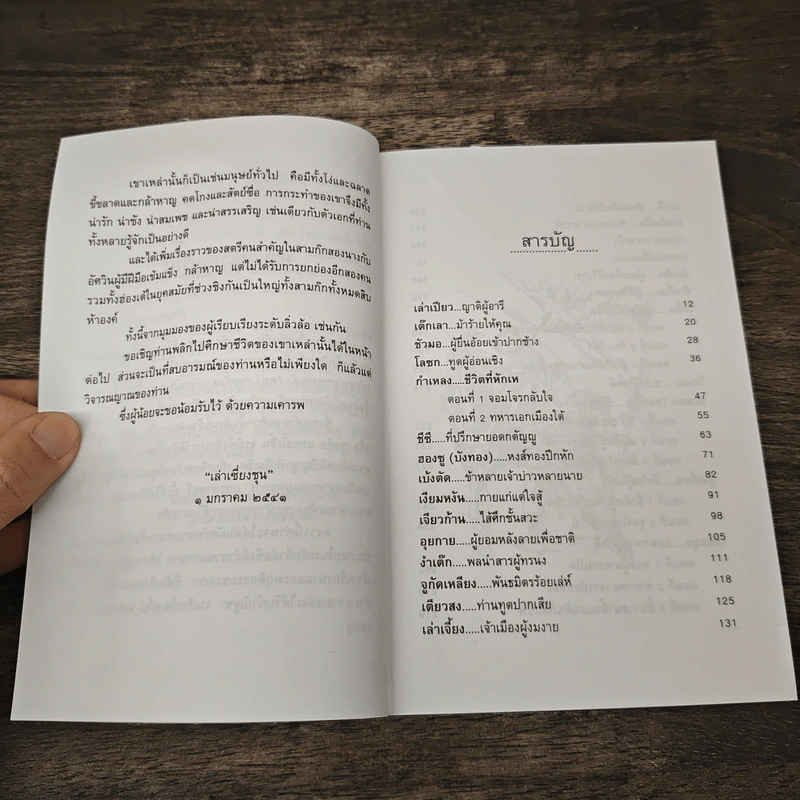 เขาเหล่านั้นก็เป็นเช่นมนุษย์ทั่วไป คือมีทั้งโง่และฉลาด
ขี้ขลาดและกล้าหาญ คดโกงและสัตย์ซื่อ การกระทำของเขาจึงมีทั้ง
น่ารัก น่าชัง น่าสมเพช และน่าสรรเสริญ เช่นเดียวกับตัวเอกที่ท่าน
ทั้งหลายรู้จักเป็นอย่างดี
และได้เพิ่มเรื่องราวของสตรีคนสำคัญในสามก๊กสองนางกับ
อัศวินผู้มีฝีมือเข้มแข็ง กล้าหาญ แต่ไม่ได้รับการยกย่องอีกสองคน
รวมทั้งฮ่องเต้ในยุคสมัยที่ช่วงชิงกันเป็นใหญ่ทั้งสามก๊กทั้งหมดสิบ
ห้าองค์
ทั้งนี้จากมุมมองของผู้เรียบเรียงระดับลิ่วล้อ เช่นกัน
ขอเชิญท่านพลิกไปศึกษาชีวิตของเขาเหล่านั้นได้ในหน้า
ต่อไป ส่วนจะเป็นที่สบอารมณ์ของท่านหรือไม่เพียงใด ก็แล้วแต่
วิจารณญาณของท่าน
ซึ่งผู้น้อยจะขอน้อมรับไว้ ด้วยความเคารพ
“เล่าเซี่ยงชุน”
๑ มกราคม ๒๕๔๑
สารบัญ
เล่าเปียว...ญาติผู้อารี 12
เต๊กเลา...ม้าร้ายให้คุณ 20
ชัวมอ...ผู้ยื่นอ้อยเข้าปากช้าง 28
โลซก...ทูตผู้อ่อนเชิง 36
กำเหลง....ชีวิตที่หักเห
ตอนที่ 1 จอมโจรกลับใจ 47
ตอนที่ 2 ทหารเอกเมืองใต้ 55
ชีซี.....ที่ปรึกษายอดกตัญญู 63
ฮองซู (บังทอง)....หงส์ทองปีกหัก 71
เบ้งตัด....ข้าหลายเจ้าบ่าวหลายนาย 82
เงียมหงัน....กายแก่แต่ใจสู้ 91
เจียวก้าน....ไส้ศึกชั้นสวะ 98
อุยกาย.....ผู้ยอมหลังลายเพื่อชาติ 105
งำเต๊ก....พลนำสารผู้ทรนง 111
จูกัดเหลียง.....พันธมิตรร้อยเล่ห์ 118
เตียวสง....ท่านทูตปากเสีย 125
เล่าเจี้ยง.....เจ้าเมืองผู้งมงาย 131